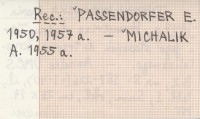 Rec.: "PASSENDORFER E.
1950, 1957 a. — "MICHALIK
A. 1955 a.